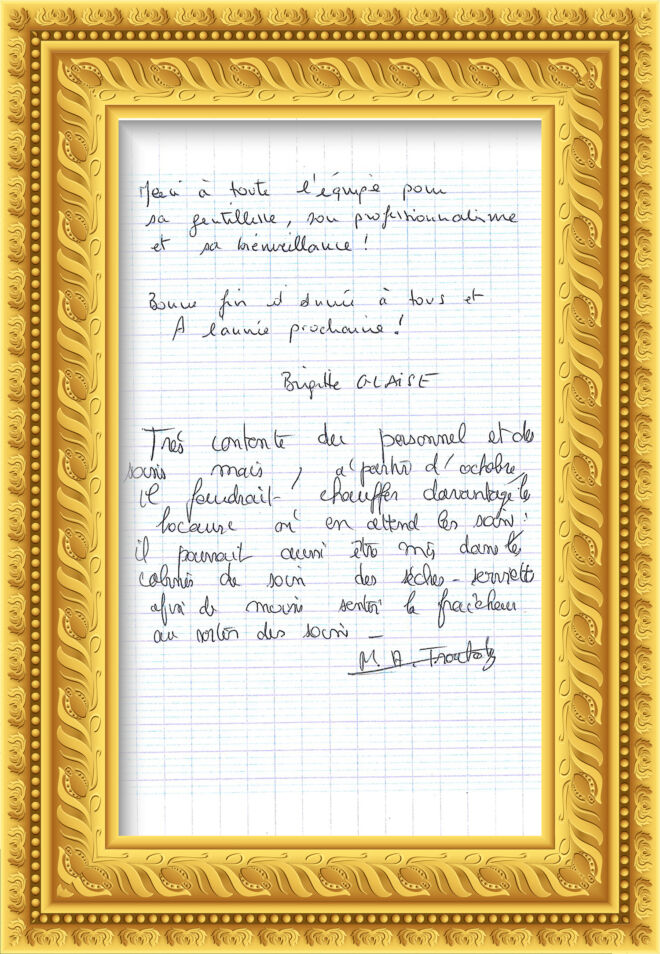 Merci à toute l'équipe pour
sa gentillesse, son professionnalisme
et sa bienveillance !
Bonne fin d'année à tous et
A l'année prochaine !
Brigitte GLAISE
Très contente du personnel et des
soins mais, à partir d'octobre,
il faudrait chauffer davantage le
locaux où on attend les soins :
il pourrait aussi être mis dans les
cabines de soin des sèche-serviette
afin de moins sentir la fraîcheur
au sortir des soins –
M. A.